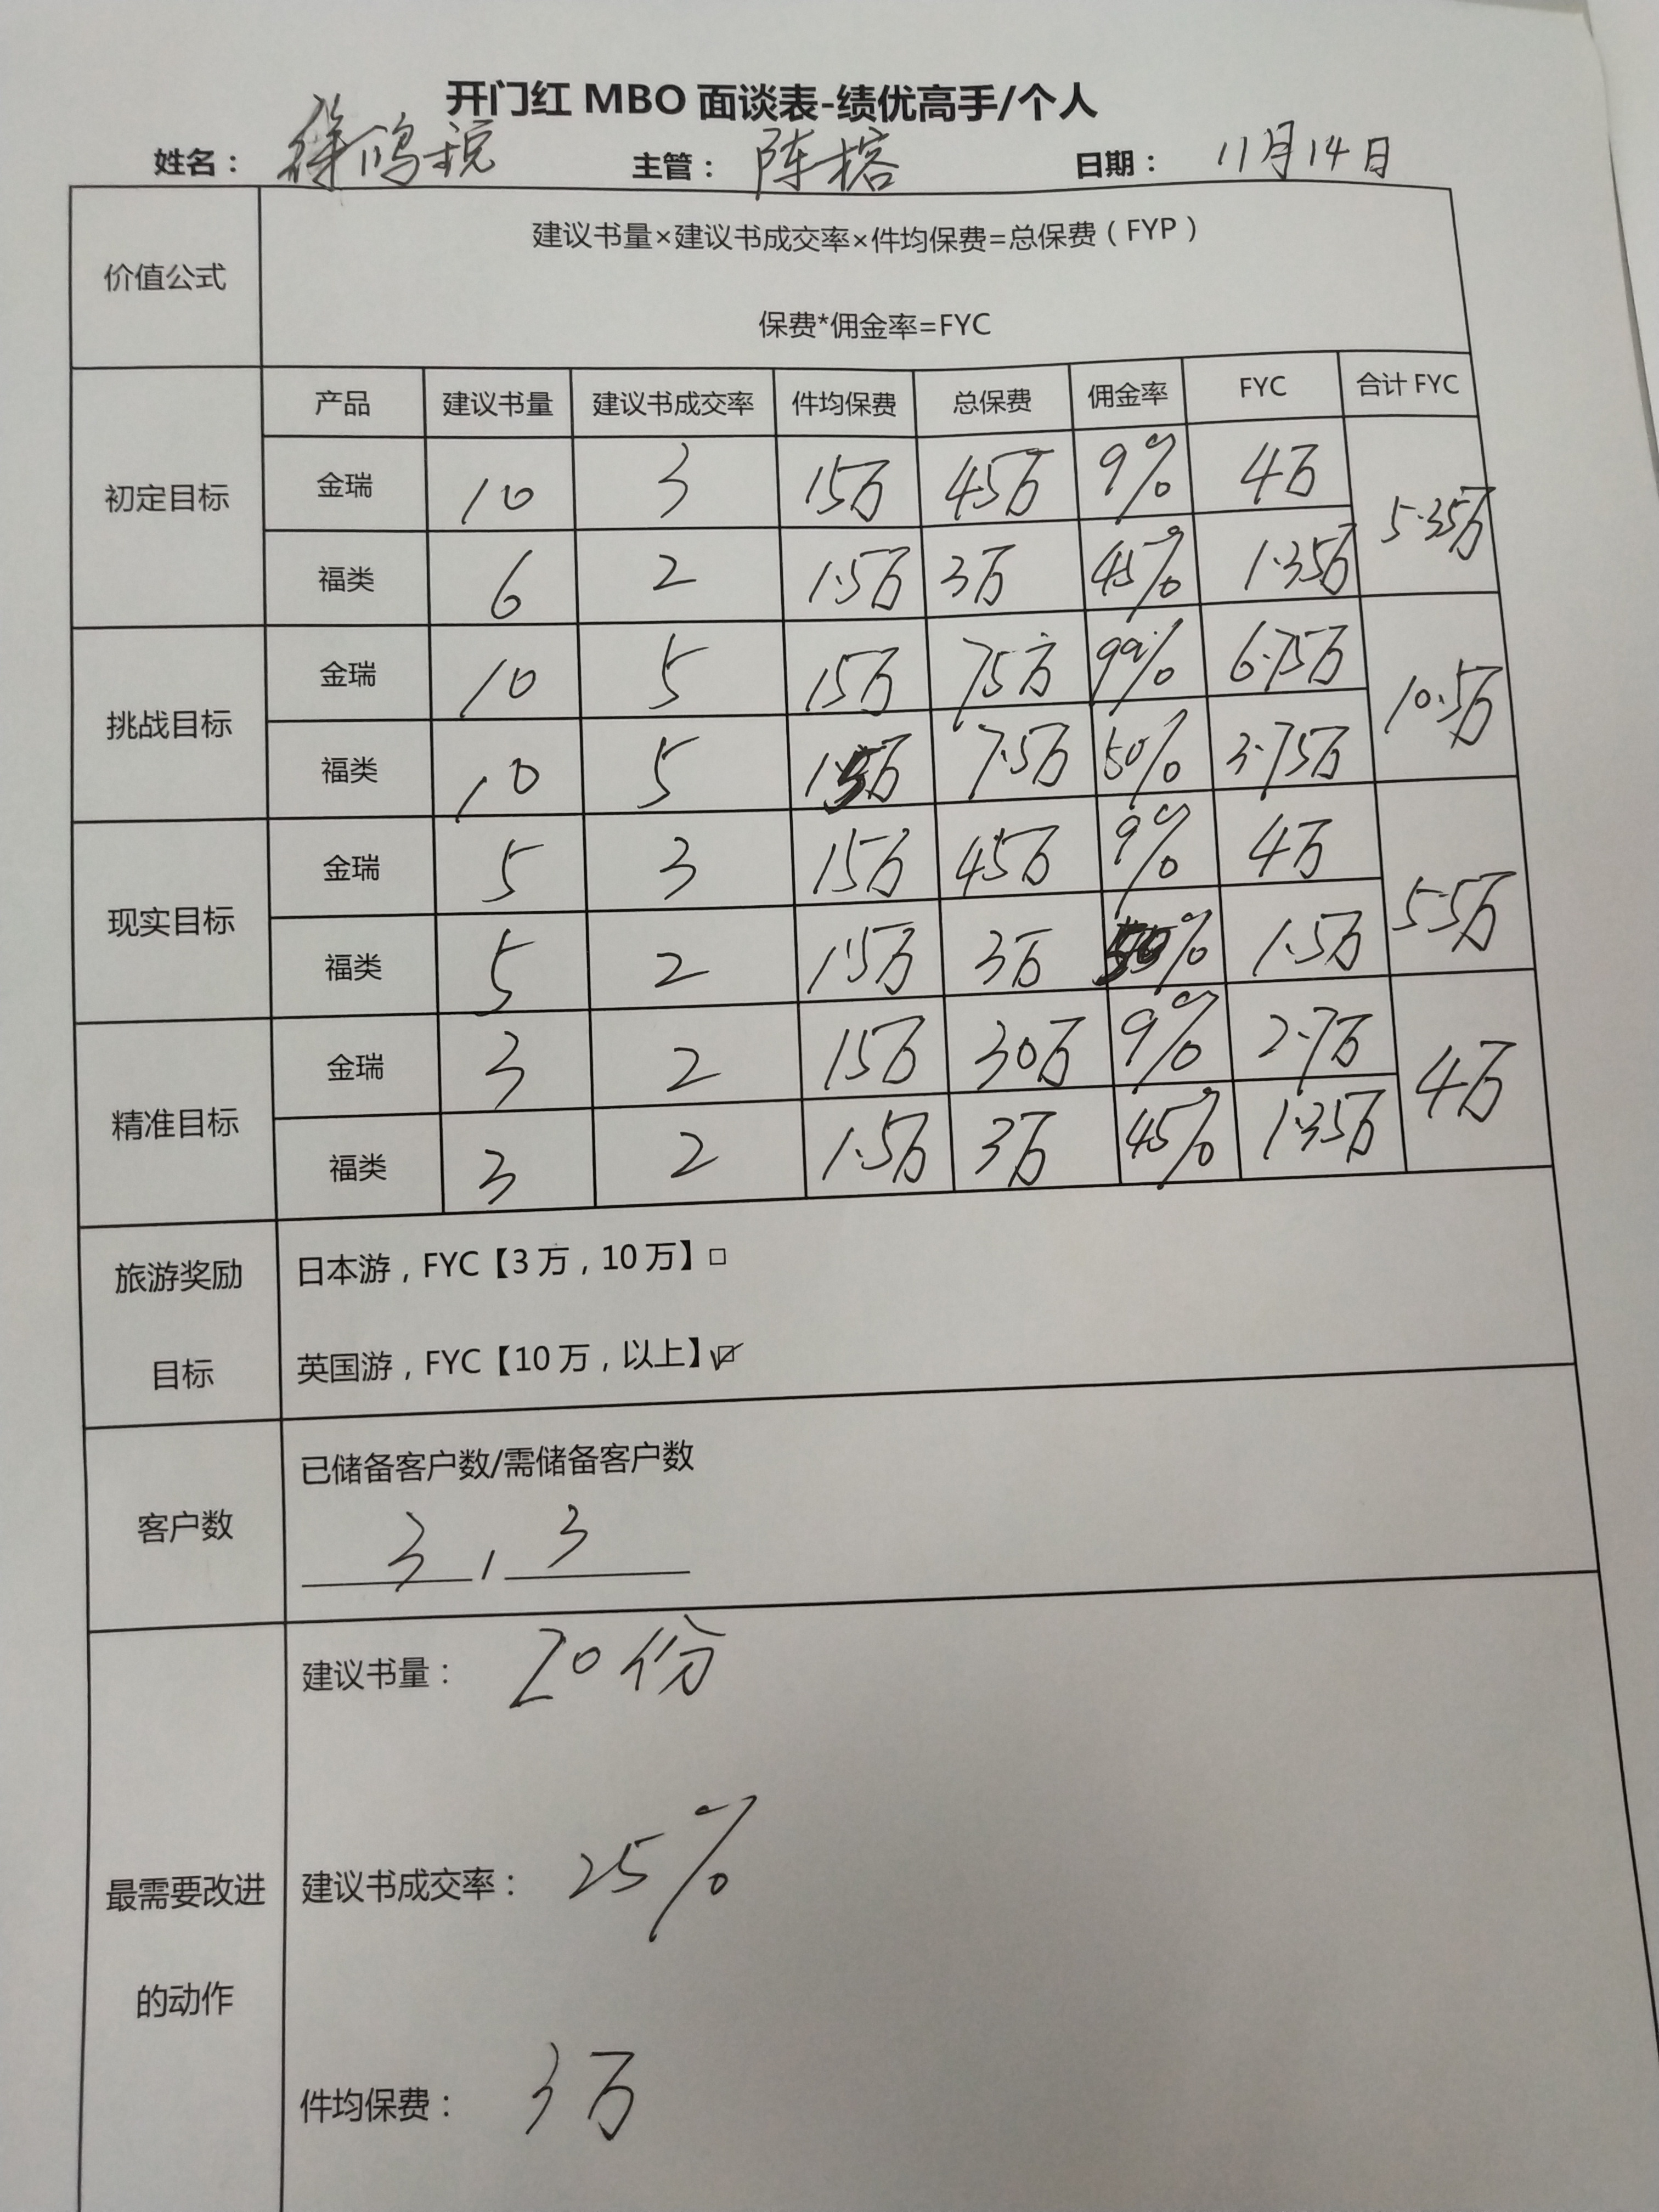 开门红 MBO 面谈表-绩优高手/个人
姓名： 徐鸣锐 主管： 陈榕 日期： 11月14日
价值公式 建议书量×建议书成交率×件均保费=总保费（FYP）
保费*佣金率=FYC
产品 建议书量 建议书成交率 件均保费 总保费 佣金率 FYC 合计 FYC
初定目标 金瑞 10 3 15万 45万 9% 4万 5.35万
福类 6 2 1.5万 3万 45% 1.35万
挑战目标 金瑞 10 5 15万 75万 9% 6.75万 10.5万
福类 10 5 1.5万 7.5万 50% 3.75万
现实目标 金瑞 5 3 15万 45万 9% 4万 5.5万
福类 5 2 1.5万 3万 50% 1.5万
精准目标 金瑞 3 2 15万 30万 9% 2.7万 4万
福类 3 2 1.5万 3万 45% 1.35万
旅游奖励 日本游，FYC【3 万，10 万】□
目标 英国游，FYC【10 万，以上】☑
已储备客户数/需储备客户数
客户数 3 / 3
建议书量： 20份
最需要改进 建议书成交率： 25%
的动作
件均保费： 3万